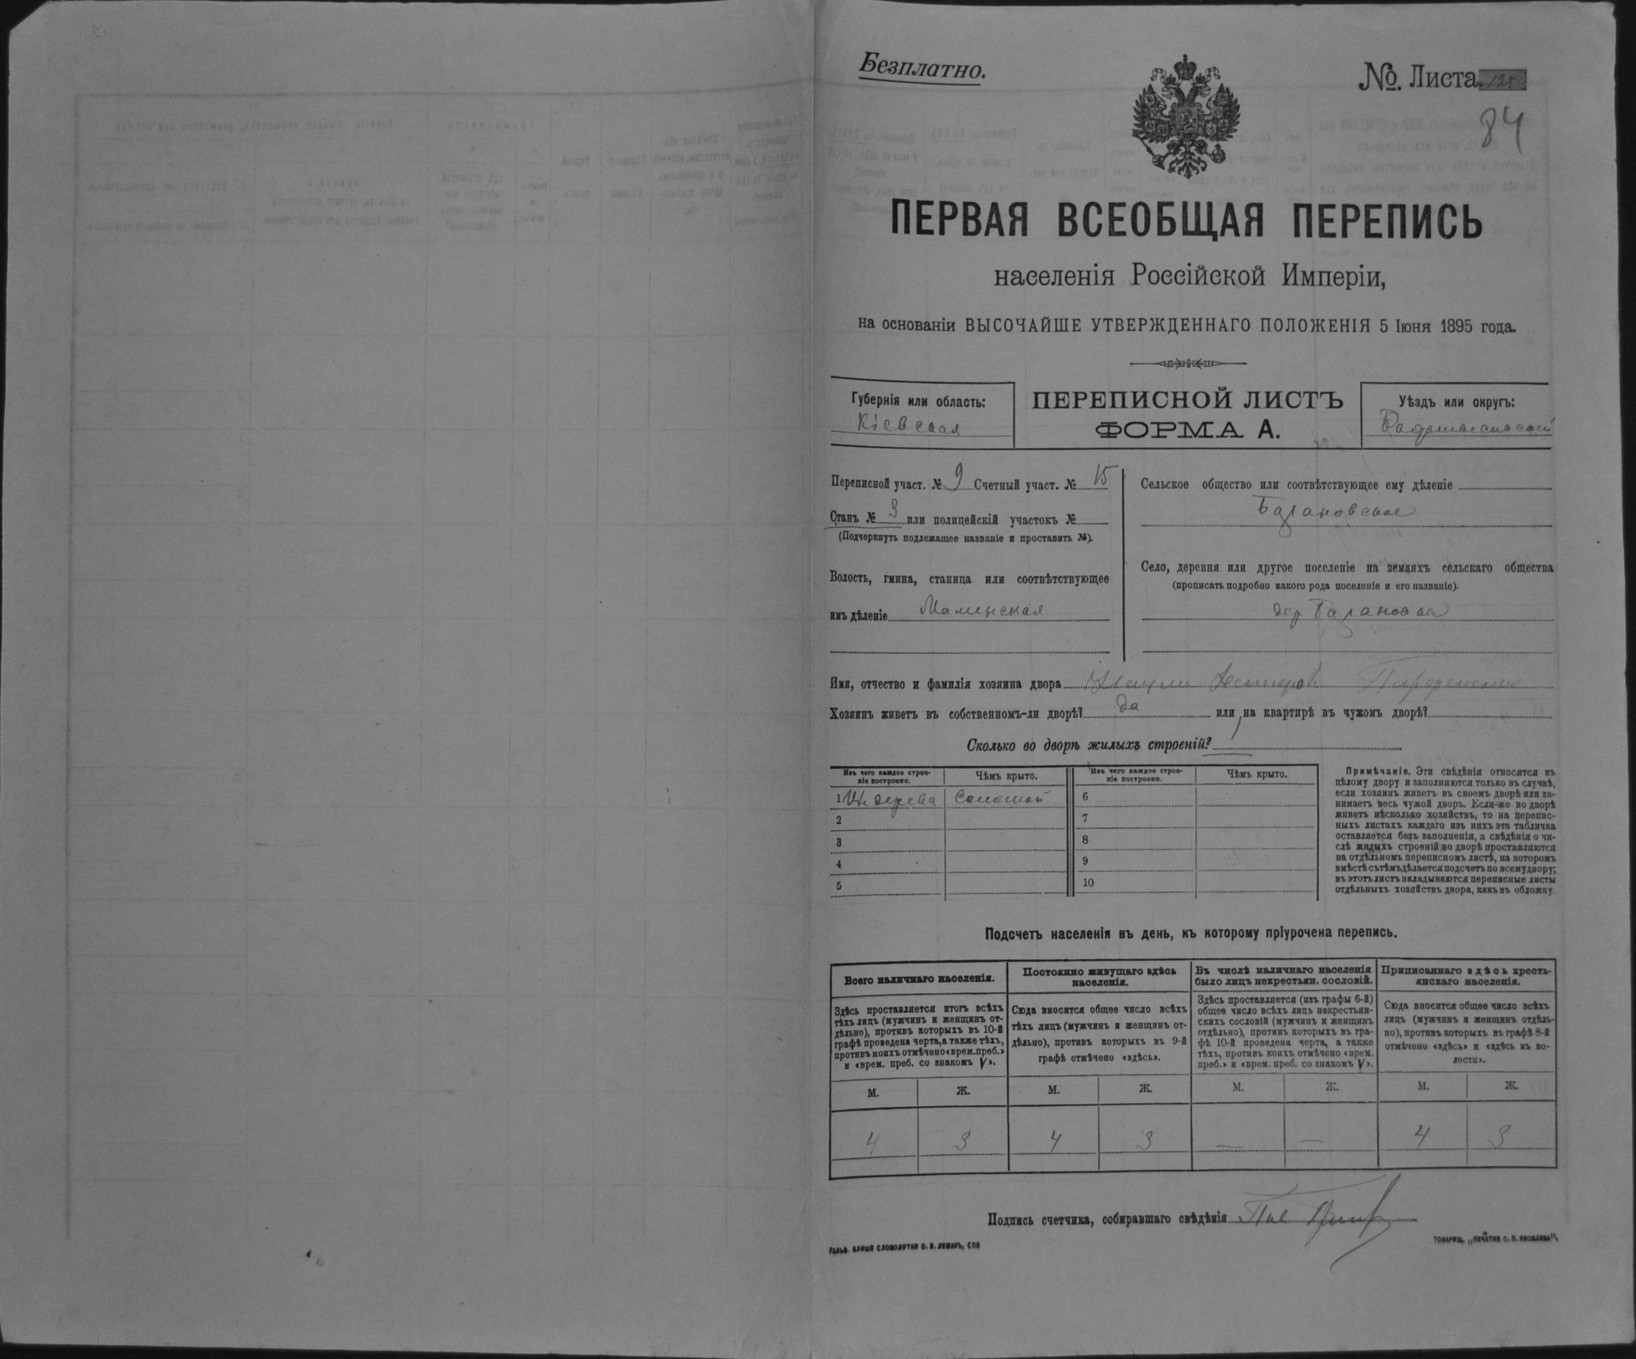 Безплатно.
№. Листа 125
84
ПЕРВАЯ ВСЕОБЩАЯ ПЕРЕПИСЬ
населенія Россійской Имперіи,
на основаніи ВЫСОЧАЙШЕ УТВЕРЖДЕННАГО ПОЛОЖЕНІЯ 5 Іюня 1895 года.
Губернія или область:
Кіевская
ПЕРЕПИСНОЙ ЛИСТЪ
ФОРМА А.
Уѣздъ или округъ:
Переписной участ. № 9 Счетный участ. № 15
Станъ № 3 или полицейскій участокъ №
(Подчеркнуть подлежащее названіе и проставить №).
Волость, гмина, станица или соотвѣтствующее
имъ дѣленіе Маминская
Сельское общество или соотвѣтствующее ему дѣленіе
Базановское
Село, деревня или другое поселеніе на земляхъ сельскаго общества
(прописать подробно какого рода поселеніе и его названіе).
дер Базановка
Имя, отчество и фамилія хозяина двора
Хозяинъ живетъ въ собственномъ-ли дворѣ? да или на квартирѣ въ чужомъ дворѣ?
Сколько во дворѣ жилыхъ строеній? 1
Изъ чего каждое строе-
ніе построено.
Чѣмъ крыто.
Изъ чего каждое строе-
ніе построено.
Чѣмъ крыто.
1 Изъ дерева Соломой 6
2 7
3 8
4 9
5 10
Примѣчаніе. Эти свѣдѣнія относятся къ
цѣлому двору и заполняются только въ случаѣ,
если хозяинъ живетъ въ своемъ дворѣ или за-
нимаетъ весь чужой дворъ. Если-же во дворѣ
живетъ нѣсколько хозяйствъ, то на перепис-
ныхъ листахъ каждаго изъ нихъ эта табличка
оставляется безъ заполненія, а свѣдѣнія о чи-
слѣ жилыхъ строеній во дворѣ проставляются
на отдѣльномъ переписномъ листѣ, на которомъ
вмѣстѣ съ тѣмъ дѣлается подсчетъ по всему двору;
въ этотъ листъ вкладываются переписные листы
отдѣльныхъ хозяйствъ двора, какъ въ обложку.
Подсчетъ населенія въ день, къ которому пріурочена перепись.
Всего наличнаго населенія.
Здѣсь проставляется итогъ всѣхъ
тѣхъ лицъ (мужчинъ и женщинъ от-
дѣльно), противъ которыхъ въ 10-й
графѣ проведена черта, а также тѣхъ,
противъ коихъ отмѣчено «врем. преб.»
и «врем. преб. со знакомъ V».
Постоянно живущаго здѣсь
населенія.
Сюда вносится общее число всѣхъ
тѣхъ лицъ (мужчинъ и женщинъ от-
дѣльно), противъ которыхъ въ 9-й
графѣ отмѣчено «здѣсь».
Въ числѣ наличнаго населенія
было лицъ некрестьян. сословій.
Здѣсь проставляется (изъ графы 6-й)
общее число всѣхъ лицъ некрестьян-
скихъ сословій (мужчинъ и женщинъ
отдѣльно), противъ которыхъ въ гра-
фѣ 10-й проведена черта, а также
тѣхъ, противъ коихъ отмѣчено «врем.
преб.» и «врем. преб. со знакомъ V».
Приписаннаго здѣсь кресть-
янскаго населенія.
Сюда вносится общее число всѣхъ
лицъ (мужчинъ и женщинъ отдѣль-
но), противъ которыхъ въ графѣ 8-й
отмѣчено «здѣсь» и «здѣсь въ во-
лости».
М. Ж. М. Ж. М. Ж. М. Ж.
4 3 4 3 — — 4 3
Подпись счетчика, собиравшаго свѣдѣнія
ГАЛЬВ. КЛИШЕ СЛОВОЛИТНИ О. И. ЛЕМАНЪ, СПБ
ТОВАРИЩ. „ПЕЧАТНЯ С. П. ЯКОВЛЕВА".